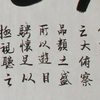 之大俯察
品類之盛
所以遊目
騁懷足以
極視聽之